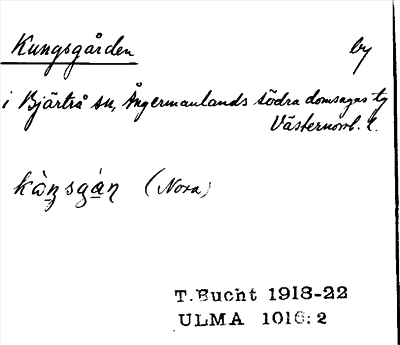 Kungsgården by
i Bjärtrå sn, Ångermanlands södra domsagas tg
Västernorrl. l.
kòn̥sgán̥ (Nora)
T. Bucht 1918-22
ULMA 1016:2